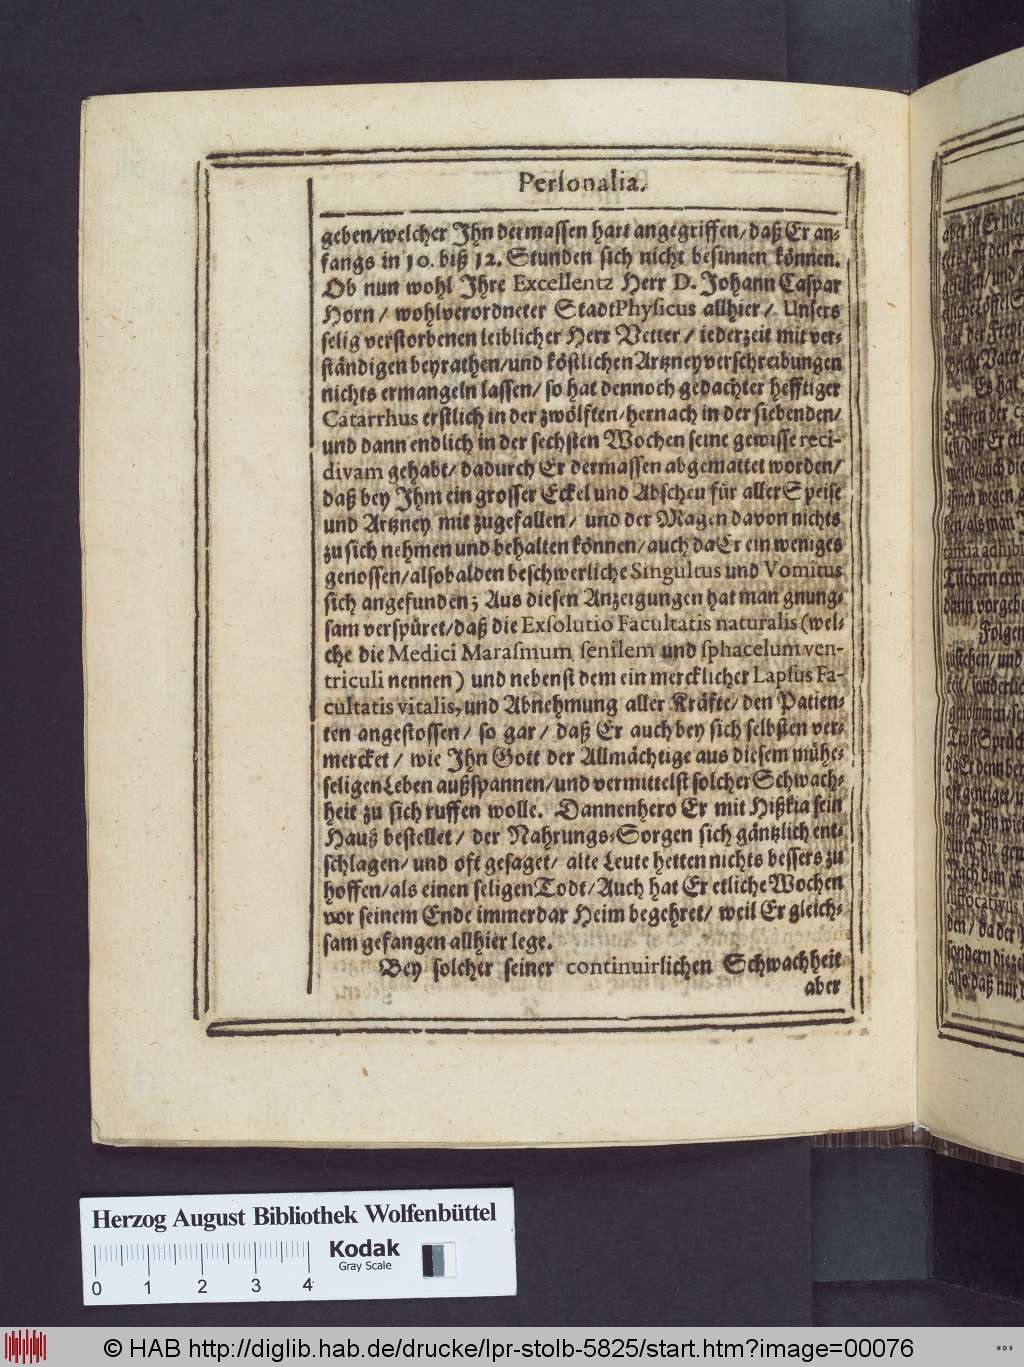 Perſonalia.
geben/welcher Jhn dermaſſen hart angegriffen/daß Er an-
fangs in 10. biß 12. Stunden ſich nicht beſinnen können.
Ob nun wohl Jhre Excellentz Herr D. Johann Caſpar
Horn/ wohlverordneter StadtPhyſicus allhier/ Unſers
ſelig verſtorbenen leiblicher Herr Vetter/ iederzeit mit ver-
ſtändigen beyrathen/und köſtlichen Artzneyverſchreibungen
nichts ermangeln laſſen/ ſo hat dennoch gedachter hefftiger
Catarrhus erſtlich in der zwölften/hernach in der ſiebenden/
und dann endlich in der ſechſten Wochen ſeine gewiſſe reci-
divam gehabt/ dadurch Er dermaſſen abgemattet worden/
daß bey Jhm ein groſſer Eckel und Abſcheu für aller Speiſe
und Artzney mit zugefallen/ und der Magen davon nichts
zu ſich nehmen und behalten können/auch da Er ein weniges
genoſſen/alſobalden beſchwerliche Singultus und Vomitus
ſich angefunden; Aus dieſen Anzeigungen hat man gnung-
ſam verſpüret/daß die Exſolutio Facultatis naturalis (wel-
che die Medici Maraſmum ſenilem und ſphacelum ven-
triculi nennen) und nebenſt dem ein mercklicher Lapſus Fa-
cultatis vitalis, und Abnehmung aller Kräfte/ den Patien-
ten angeſtoſſen/ ſo gar/ daß Er auch bey ſich ſelbſten ver-
mercket/ wie Jhn Gott der Allmächtige aus dieſem mühe-
ſeligen Leben außſpannen/und vermittelſt ſolcher Schwach-
heit zu ſich ruffen wolle. Dannenhero Er mit Hißkia ſein
Hauß beſtellet/ der Nahrungs-Sorgen ſich gäntzlich ent-
ſchlagen/ und oft geſaget/ alte Leute hetten nichts beſſers zu
hoffen/als einen ſeligen Todt/Auch hat Er etliche Wochen
vor ſeinem Ende immerdar Heim begehret/ weil Er gleich-
ſam gefangen allhier lege.
Bey ſolcher ſeiner continuirlichen Schwachheit
aber
Herzog August Bibliothek Wolfenbüttel
Kodak
Gray Scale
0 1 2 3 4
© HAB http://diglib.hab.de/drucke/lpr-stolb-5825/start.htm?image=00076